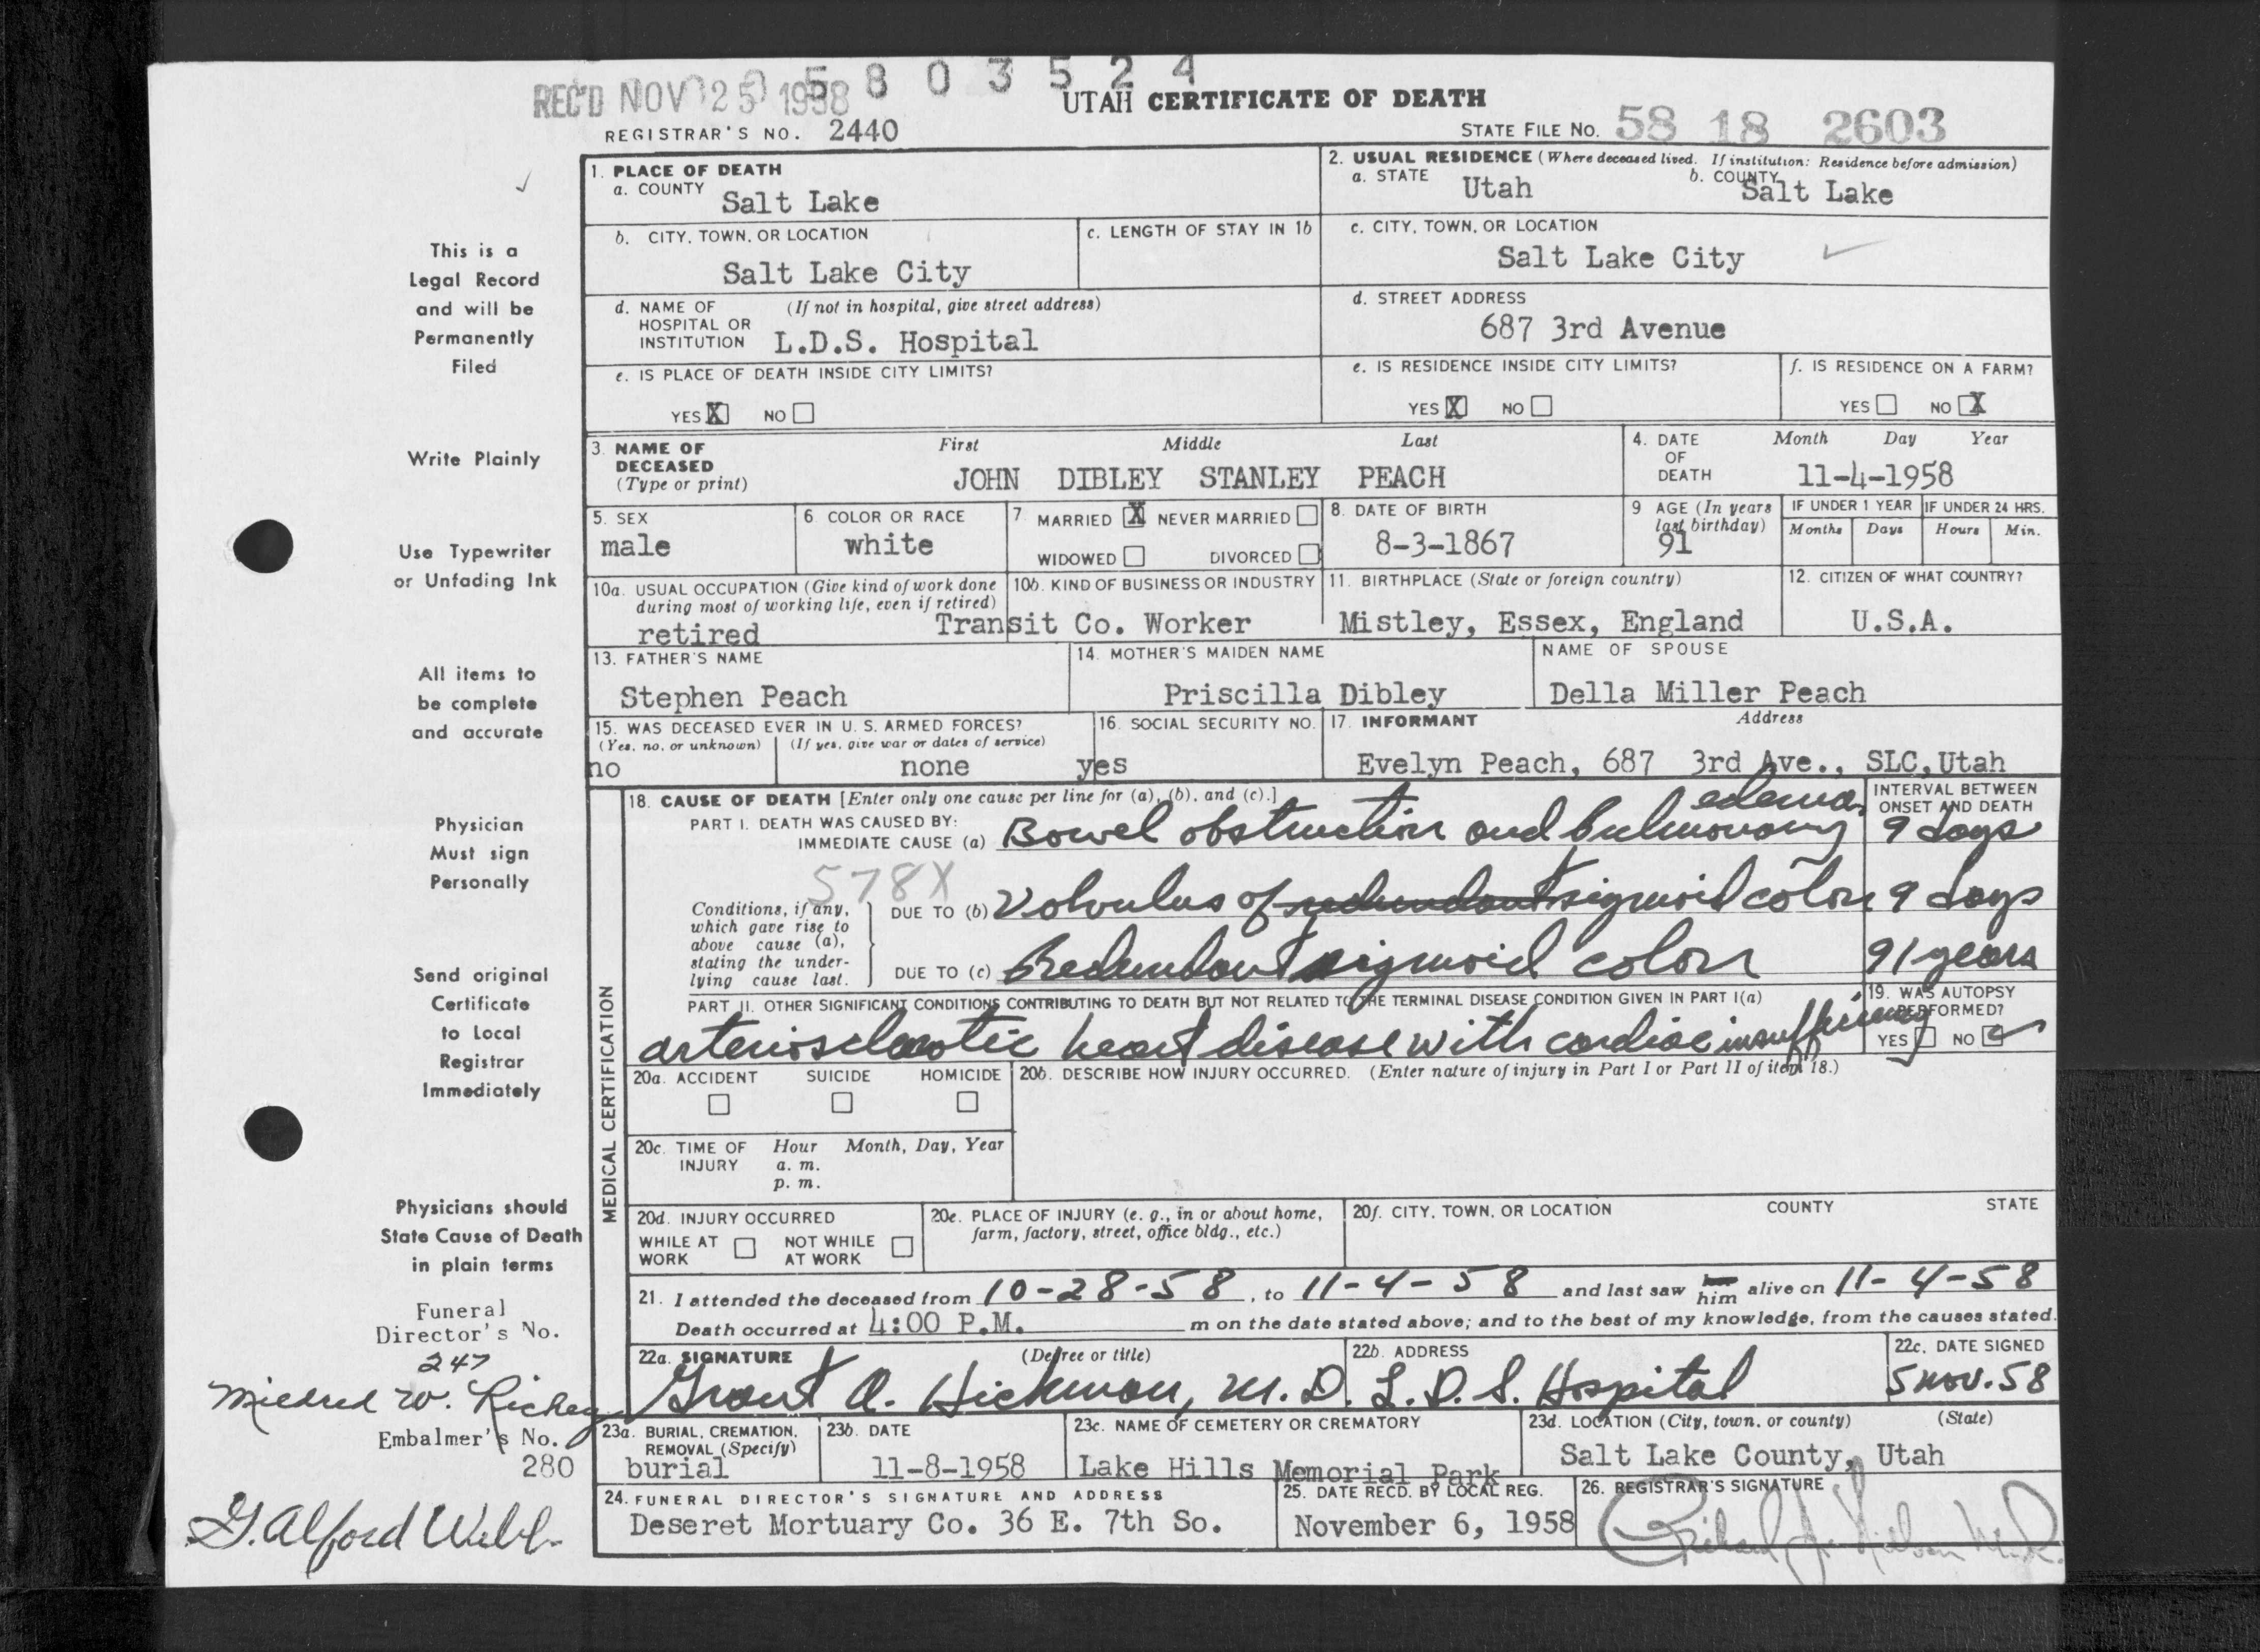 REC'D NOV 25 1958
5 8 0 3 5 2 4
UTAH CERTIFICATE OF DEATH
REGISTRAR'S NO. 2440
STATE FILE NO. 58 18 2603
This is a
Legal Record
and will be
Permanently
Filed
Write Plainly
Use Typewriter
or Unfading Ink
All items to
be complete
and accurate
Physician
Must sign
Personally
Send original
Certificate
to Local
Registrar
Immediately
Physicians should
State Cause of Death
in plain terms
Funeral
Director's No.
247
Mildred W. Richey
Embalmer's No.
280
G. Alford Webb
1. PLACE OF DEATH
a. COUNTY Salt Lake
2. USUAL RESIDENCE (Where deceased lived. If institution: Residence before admission)
a. STATE Utah b. COUNTY Salt Lake
b. CITY, TOWN, OR LOCATION
Salt Lake City
c. LENGTH OF STAY IN 1b
c. CITY, TOWN, OR LOCATION
Salt Lake City
d. NAME OF (If not in hospital, give street address)
HOSPITAL OR
INSTITUTION L.D.S. Hospital
d. STREET ADDRESS
687 3rd Avenue
e. IS PLACE OF DEATH INSIDE CITY LIMITS?
YES X NO
e. IS RESIDENCE INSIDE CITY LIMITS?
YES X NO
f. IS RESIDENCE ON A FARM?
YES NO X
3. NAME OF First Middle Last
DECEASED
(Type or print) JOHN DIBLEY STANLEY PEACH
4. DATE Month Day Year
OF
DEATH 11-4-1958
5. SEX
male
6 COLOR OR RACE
white
7 MARRIED X NEVER MARRIED
WIDOWED DIVORCED
8. DATE OF BIRTH
8-3-1867
9 AGE (In years
last birthday)
91
IF UNDER 1 YEAR IF UNDER 24 HRS.
Months Days Hours Min.
10a. USUAL OCCUPATION (Give kind of work done
during most of working life, even if retired)
retired
10b. KIND OF BUSINESS OR INDUSTRY
Transit Co. Worker
11. BIRTHPLACE (State or foreign country)
Mistley, Essex, England
12. CITIZEN OF WHAT COUNTRY?
U.S.A.
13. FATHER'S NAME
Stephen Peach
14. MOTHER'S MAIDEN NAME
Priscilla Dibley
NAME OF SPOUSE
Della Miller Peach
15. WAS DECEASED EVER IN U. S. ARMED FORCES?
(Yes, no, or unknown) (If yes, give war or dates of service)
no none
16. SOCIAL SECURITY NO.
yes
17. INFORMANT Address
Evelyn Peach, 687 3rd Ave., SLC, Utah
MEDICAL CERTIFICATION
18. CAUSE OF DEATH [Enter only one cause per line for (a), (b), and (c).]
INTERVAL BETWEEN
ONSET AND DEATH
PART I. DEATH WAS CAUSED BY:
IMMEDIATE CAUSE (a) Bowel obstruction and pulmonary edema. 9 days
578X
Conditions, if any,
which gave rise to
above cause (a),
stating the under-
lying cause last.
DUE TO (b) Volvulus of redundant sigmoid colon 9 days
DUE TO (c) Redundant sigmoid colon 91 years
PART II. OTHER SIGNIFICANT CONDITIONS CONTRIBUTING TO DEATH BUT NOT RELATED TO THE TERMINAL DISEASE CONDITION GIVEN IN PART I(a)
arteriosclerotic heart disease with cardiac insufficiency
19. WAS AUTOPSY
PERFORMED?
YES NO
20a. ACCIDENT SUICIDE HOMICIDE
20b. DESCRIBE HOW INJURY OCCURRED. (Enter nature of injury in Part I or Part II of item 18.)
20c. TIME OF Hour Month, Day, Year
INJURY a. m.
p. m.
20d. INJURY OCCURRED
WHILE AT NOT WHILE
WORK AT WORK
20e. PLACE OF INJURY (e. g., in or about home,
farm, factory, street, office bldg., etc.)
20f. CITY, TOWN, OR LOCATION COUNTY STATE
21. I attended the deceased from 10-28-58, to 11-4-58 and last saw him alive on 11-4-58
Death occurred at 4:00 P.M. m on the date stated above; and to the best of my knowledge, from the causes stated.
22a. SIGNATURE (Degree or title)
Grant A. Hickman, M.D.
22b. ADDRESS
L.D.S. Hospital
22c. DATE SIGNED
5 Nov. 58
23a. BURIAL, CREMATION,
REMOVAL (Specify)
burial
23b. DATE
11-8-1958
23c. NAME OF CEMETERY OR CREMATORY
Lake Hills Memorial Park
23d. LOCATION (City, town, or county) (State)
Salt Lake County, Utah
24. FUNERAL DIRECTOR'S SIGNATURE AND ADDRESS
Deseret Mortuary Co. 36 E. 7th So.
25. DATE RECD. BY LOCAL REG.
November 6, 1958
26. REGISTRAR'S SIGNATURE